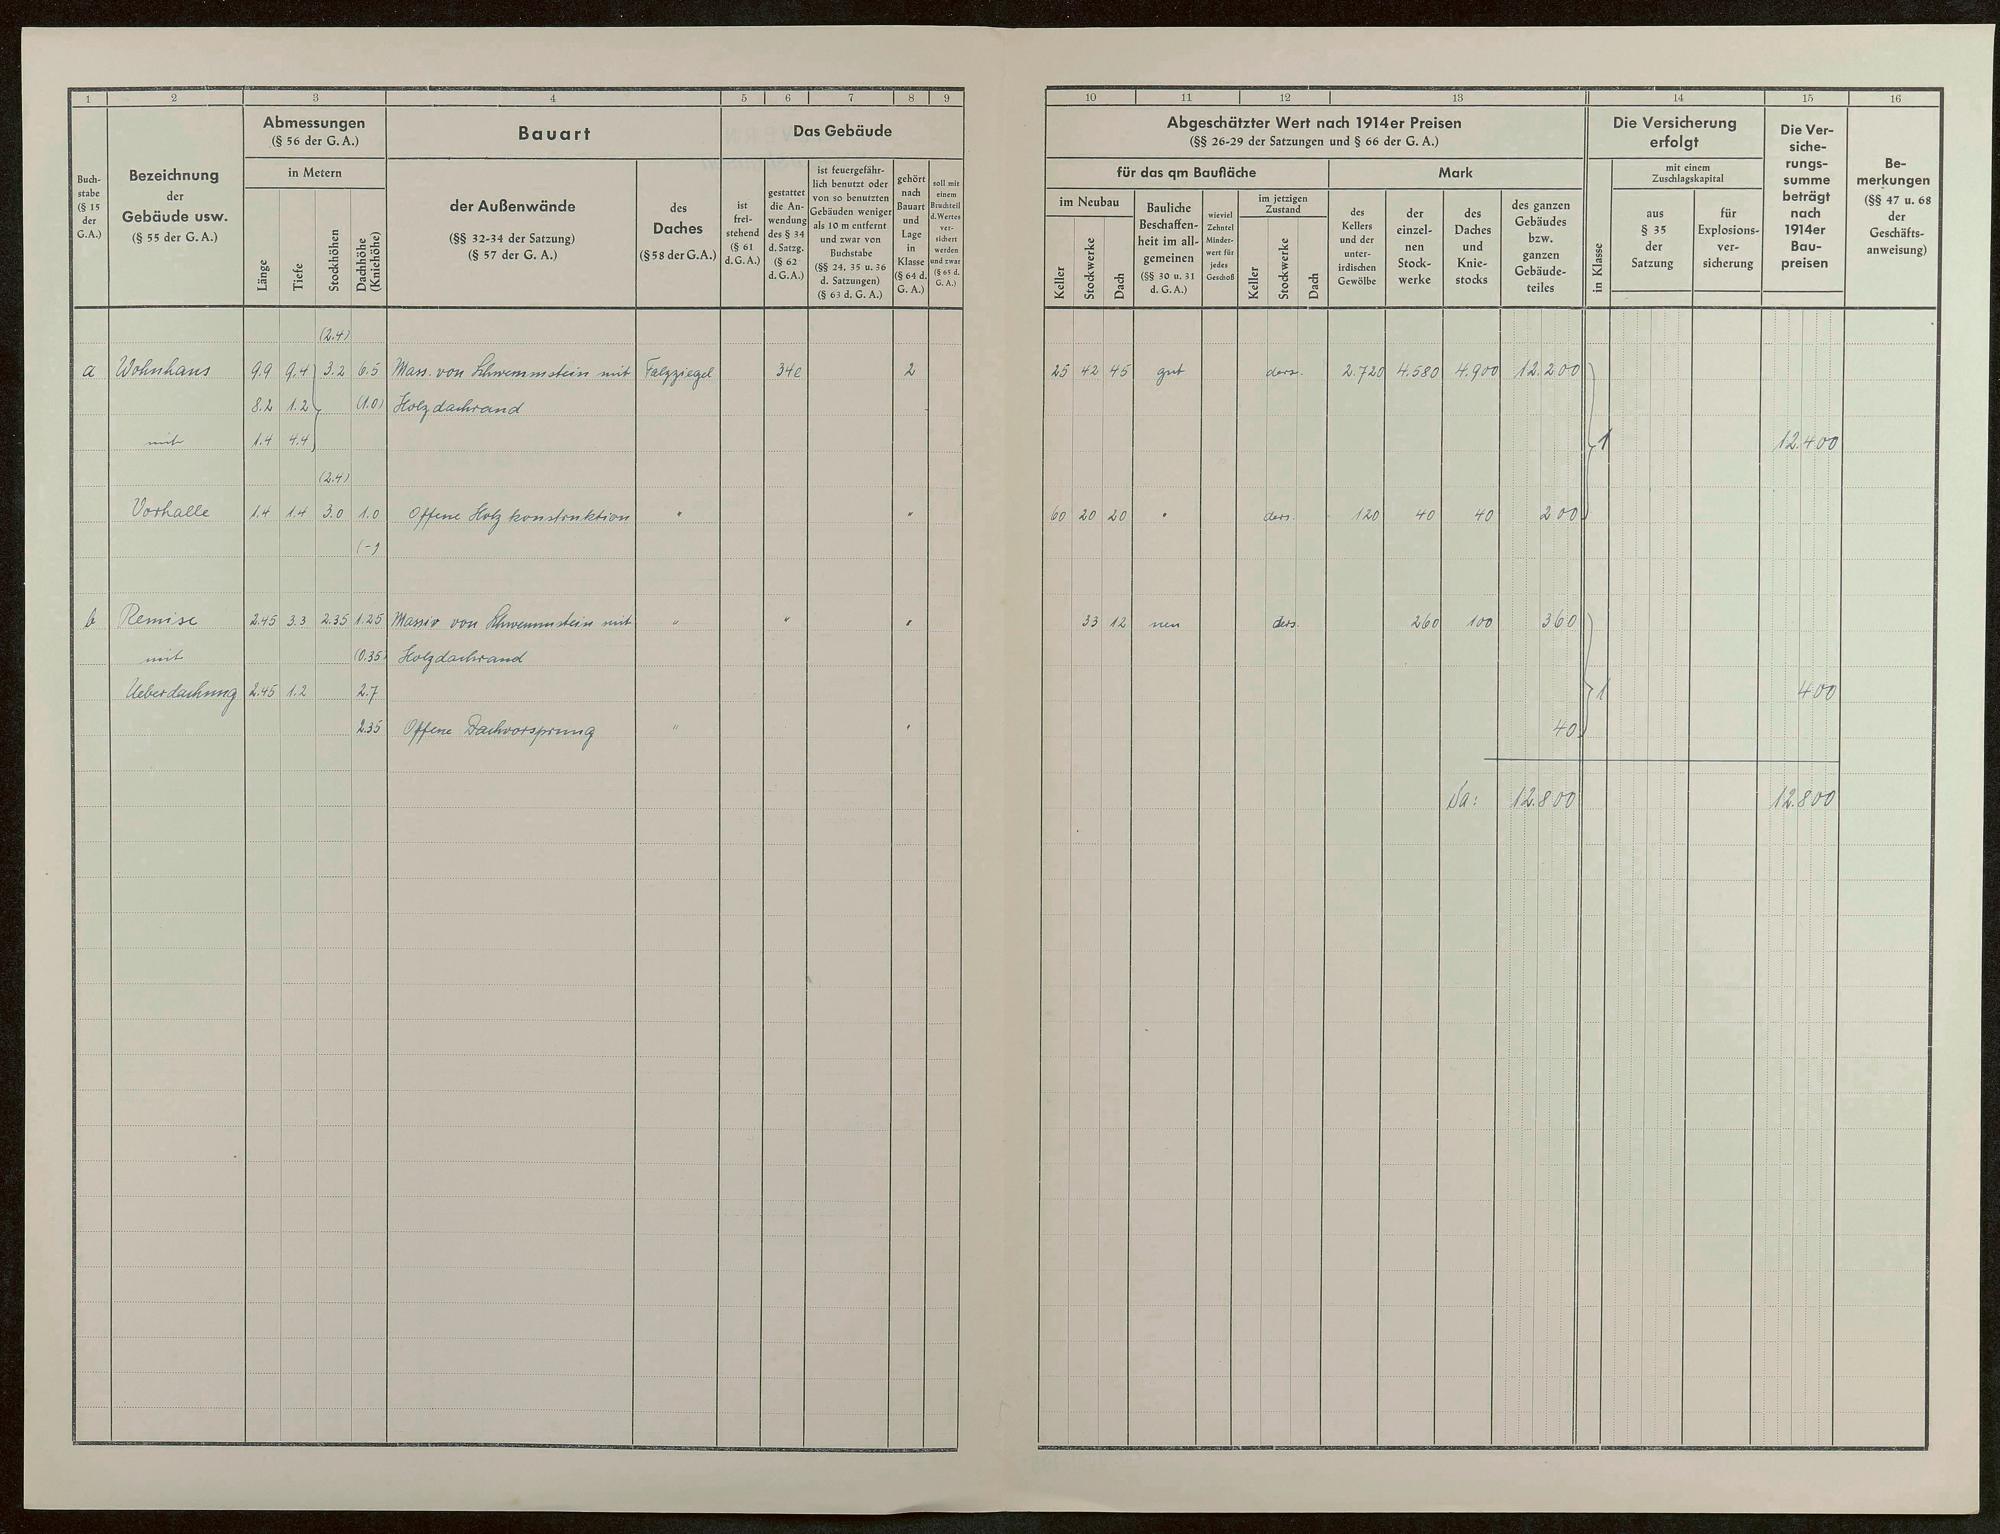 1 2 3 4 5 6 7 8 9
Buch-
stabe
(§ 15
der
G.A.)
Bezeichnung
der
Gebäude usw.
(§ 55 der G.A.)
Abmessungen
(§ 56 der G.A.)
in Metern
Länge
Tiefe
Stockhöhen
Dachhöhe
(Kniehöhe)
Bauart
der Außenwände
(§§ 32-34 der Satzung)
(§ 57 der G. A.)
des
Daches
(§ 58 der G.A.)
Das Gebäude
ist
frei-
stehend
(§ 61
d. G. A.)
gestattet
die An-
wendung
des § 34
d. Satzg.
(§ 62
d. G. A.)
ist feuergefähr-
lich benutzt oder
von so benutzten
Gebäuden weniger
als 10 m entfernt
und zwar von
Buchstabe
(§§ 24, 35 u. 36
d. Satzungen)
(§ 63 d. G. A.)
gehört
nach
Bauart
und
Lage
in
Klasse
(§ 64 d.
G. A.)
soll mit
einem
Bruchteil
d. Wertes
ver-
sichert
werden
und zwar
(§ 65 d.
G. A.)
(2.4)
a Wohnhaus 9.9 9.4 3.2 6.5 Mass. von Schwemmstein mit Falzziegel 34e 2
8.2 1.2 (1.0) Holzdachrand
mit 1.4 4.4
(2.4)
Vorhalle 1.4 1.4 3.0 1.0 Offene Holzkonstruktion " "
(-)
b Remise 2.45 3.3 2.35 1.25 Massiv von Schwemmstein mit " " "
mit (0.35) Holzdachrand
Ueberdachung 2.45 1.2 2.7
2.35 Offene Dachvorsprung " "
10 11 12 13 14 15 16
Abgeschätzter Wert nach 1914er Preisen
(§§ 26-29 der Satzungen und § 66 der G. A.)
für das qm Baufläche
im Neubau
Keller
Stockwerke
Dach
Bauliche
Beschaffen-
heit im all-
gemeinen
(§§ 30 u. 31
d. G. A.)
wieviel
Zehntel
Minder-
wert für
jedes
Geschoß
im jetzigen
Zustand
Keller
Stockwerke
Dach
Mark
des
Kellers
und der
unter-
irdischen
Gewölbe
der
einzel-
nen
Stock-
werke
des
Daches
und
Knie-
stocks
des ganzen
Gebäudes
bzw.
ganzen
Gebäude-
teiles
Die Versicherung
erfolgt
in Klasse
mit einem
Zuschlagskapital
aus
§ 35
der
Satzung
für
Explosions-
ver-
sicherung
Die Ver-
siche-
rungs-
summe
beträgt
nach
1914er
Bau-
preisen
Be-
merkungen
(§§ 47 u. 68
der
Geschäfts-
anweisung)
25 42 45 gut ders. 2.720 4.580 4.900 12.200
1 12.400
60 20 20 " ders. 120 40 40 200
33 12 neu ders. 260 100 360
1 400
40
Sa: 12.800 12.800